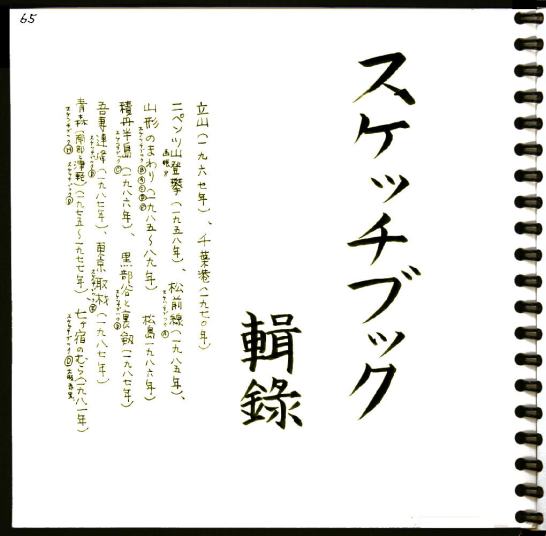 65
スケッチブック
輯錄
立山(一九六七年)、千葉港(一九七〇年)
ニペソツ山登攀(一九五八年)、松前線(一九八五年)、
山形のまわり(一九八五〜八九年) 松島一九八六年)
積丹半島(一九八六年)、黒部谷と裏劔(一九八七年)
吾妻連峰(一九八七年)、東京取材(一九八七年)
青森(南部と津軽)(一九七五〜一九七七年)、七ヶ宿のむら(一九八一年)